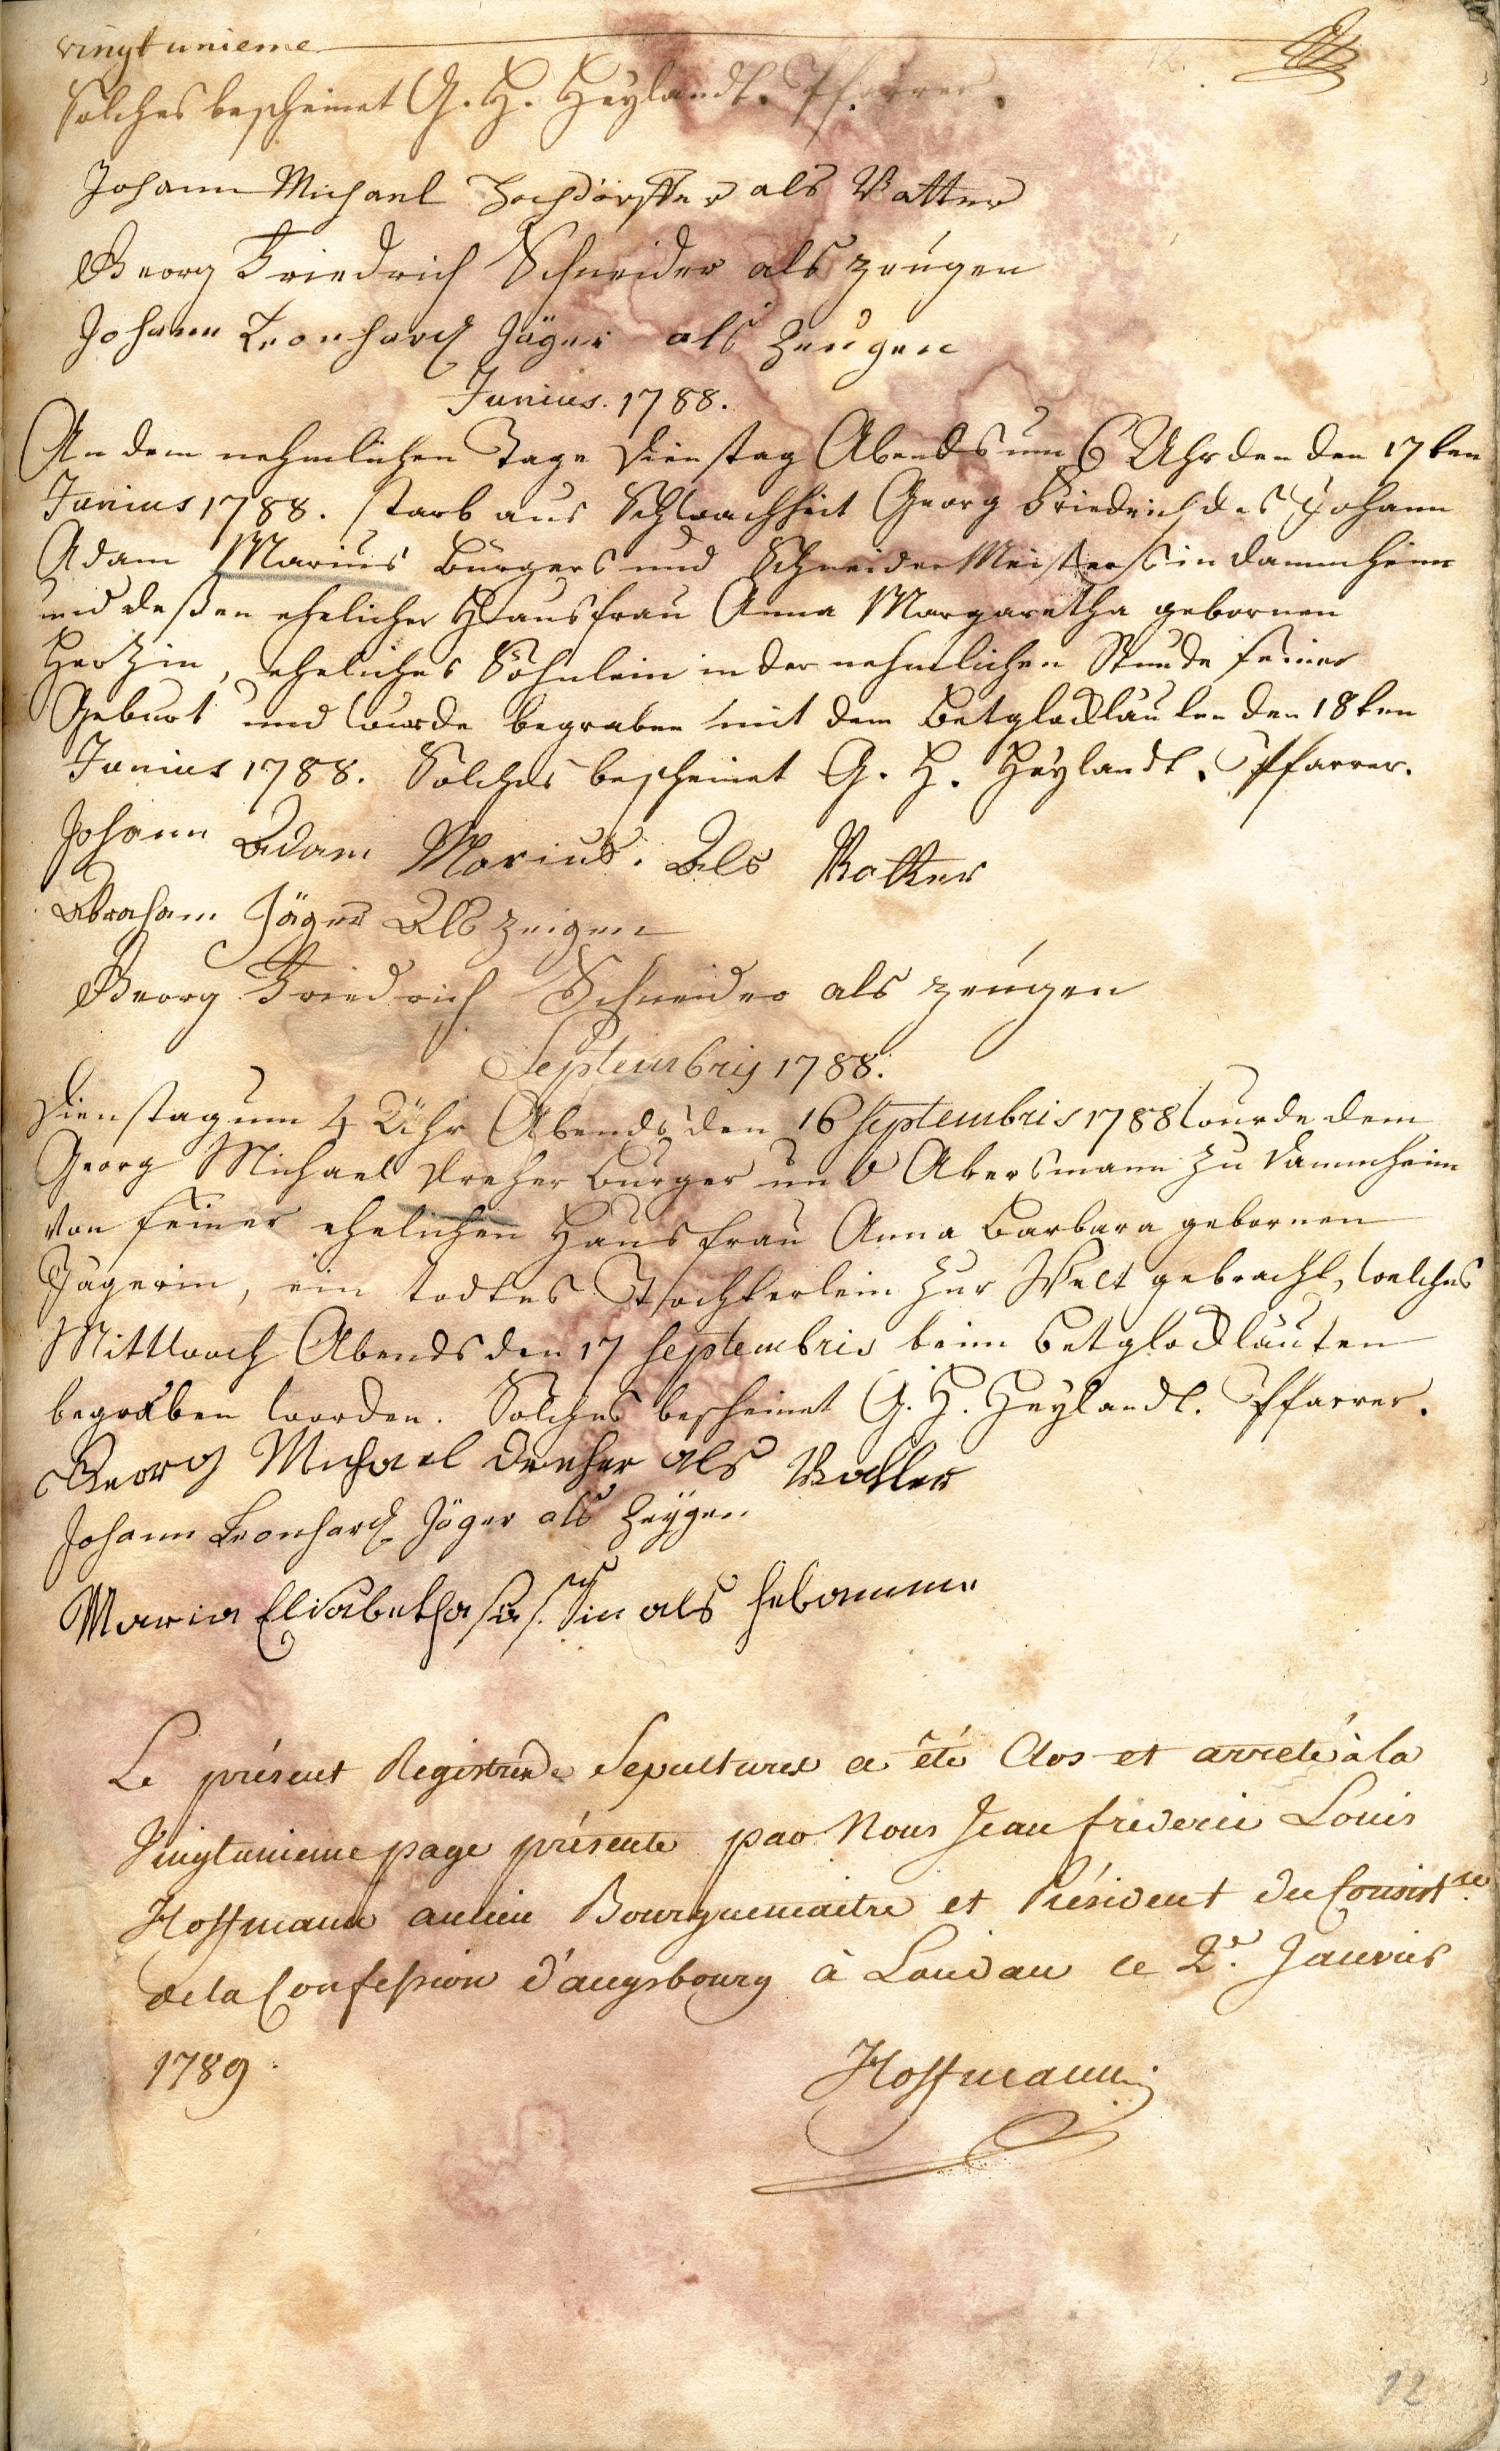 vingtunieme
Solches bescheinet G. H. Heylandt. Pfarrer.
Johann Michael Hochdörffer als Vatter
Georg Friedrich Schneider als zeugen
Johann Leonhard Jäger als Zeugen
Junius. 1788.
An dem nehmlichen Tage Dienstag Abends um 6 Uhr den den 17ten
Junius 1788. starb aus Schwachheit Georg Friedrich des Johann
Adam Marius Burgers und Schneider Meisters in Dammheim
und deßen ehelicher Hausfrau Anna Margaretha gebornen
Hertzin, eheliches Söhnlein in der nehmlichen Stunde seiner
Geburt und wurde begraben mit dem Betglockläuten den 18ten
Junius 1788. Solches bescheinet G. H. Heylandt. Pfarrer.
Johann Adam Marius. Als Vatter
Abraham Jäger Als zeigen
Georg Friedrich Schneider als zeugen
Septembris 1788.
Dienstag um 4 Uhr Abends den 16 Septembris 1788 wurde dem
Georg Michael Dreher Burger und Akersmann zu Dammheim
von seiner ehelichen Hausfrau Anna Barbara gebornen
Jägerin, ein todtes Töchterlein zur Welt gebracht, welches
Mittwoch Abends den 17 Septembris beim Betglockläuten
begraben worden. Solches bescheinet G. H. Heylandt. Pfarrer.
Georg Michael Dreher als Vatter
Johann Leonhard Jäger als Zeygen
Maria Elisabetha als hebamme
Le présent Registre de Sepultures a été Clos et arreté à la
Vingtunieme page présente par Nous Jean frideric Louis
Hoffmann ancien Bourguemaitre et Président du Consist.re
de la Confession d'augsbourg à Landau ce 2.e Janvier
1789.
Hoffmann
12